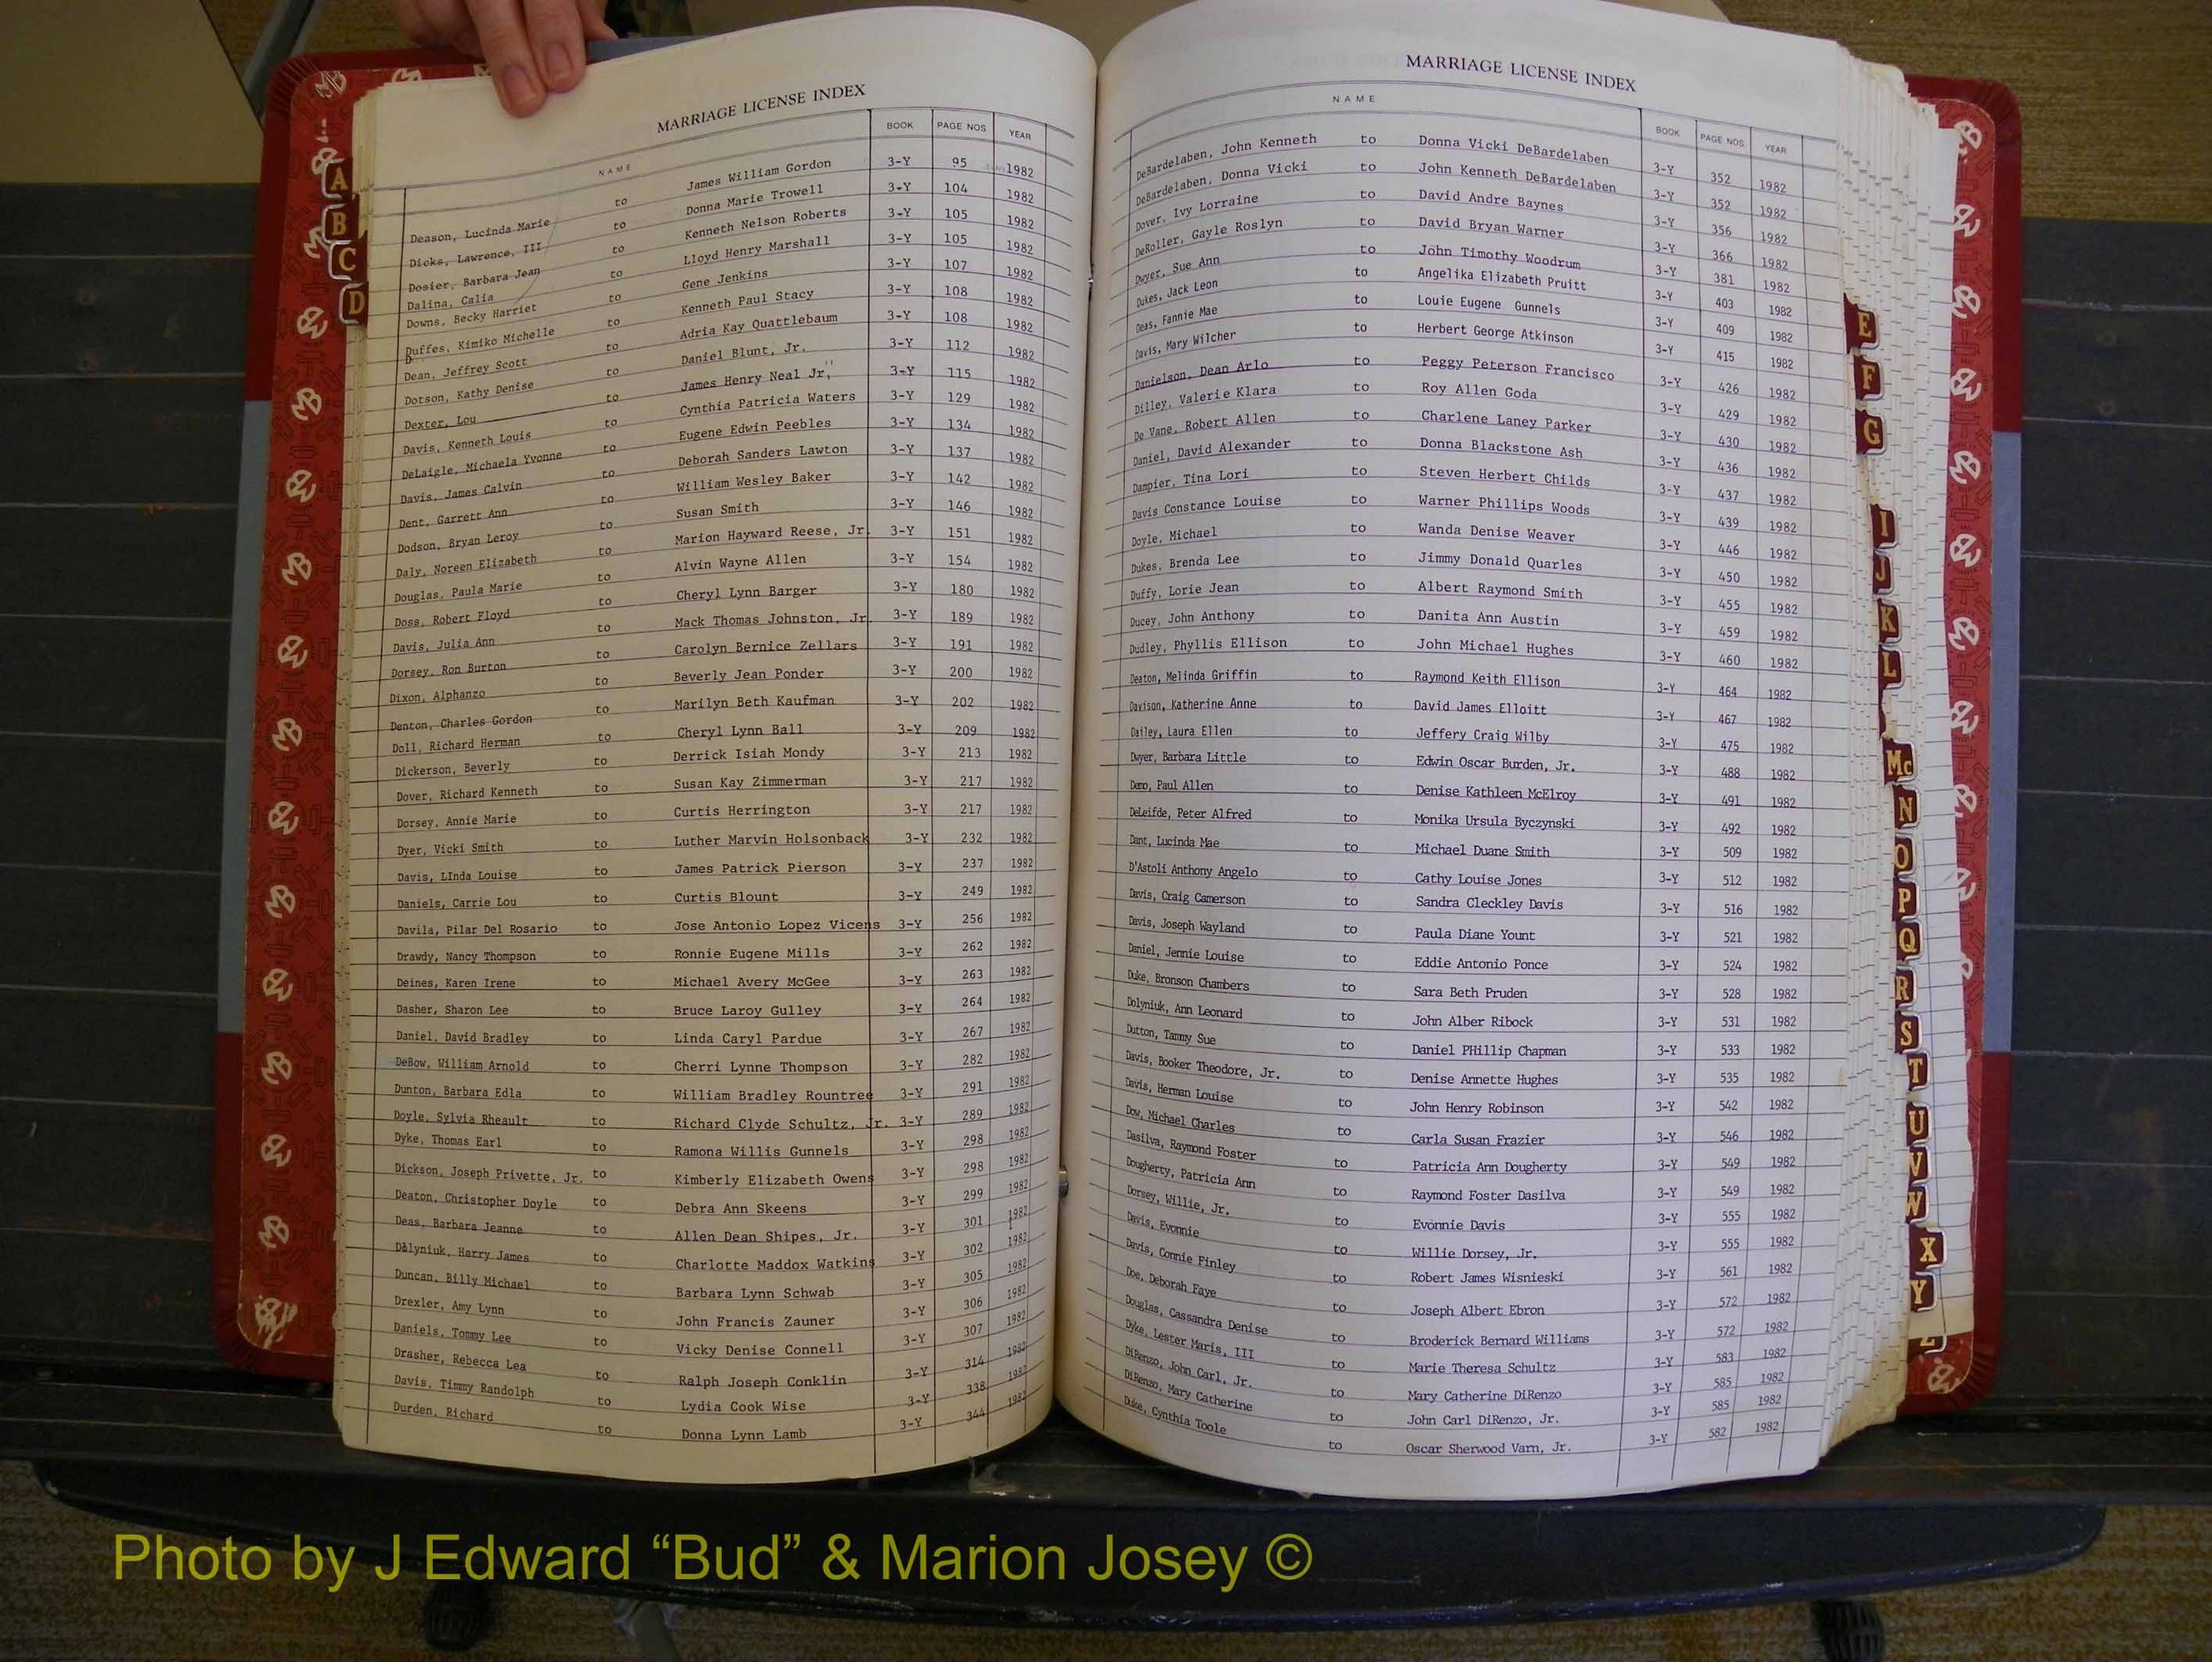 MARRIAGE LICENSE INDEX
NAME BOOK PAGE NOS YEAR
Deason, Lucinda Marie to James William Gordon 3-Y 95 1982
Dicks, Lawrence, III to Donna Marie Trowell 3-Y 104 1982
Dosier, Barbara Jean to Kenneth Nelson Roberts 3-Y 105 1982
Dalina, Calia to Lloyd Henry Marshall 3-Y 105 1982
Downs, Becky Harriet to Gene Jenkins 3-Y 107 1982
Duffes, Kimiko Michelle to Kenneth Paul Stacy 3-Y 108 1982
Dean, Jeffrey Scott to Adria Kay Quattlebaum 3-Y 108 1982
Dotson, Kathy Denise to Daniel Blunt, Jr. 3-Y 112 1982
Dexter, Lou to James Henry Neal Jr," 3-Y 115 1982
Davis, Kenneth Louis to Cynthia Patricia Waters 3-Y 129 1982
DeLaigle, Michaela Yvonne to Eugene Edwin Peebles 3-Y 134 1982
Davis, James Calvin to Deborah Sanders Lawton 3-Y 137 1982
Dent, Garrett Ann to William Wesley Baker 3-Y 142 1982
Dodson, Bryan Leroy to Susan Smith 3-Y 146 1982
Daly, Noreen Elizabeth to Marion Hayward Reese, Jr. 3-Y 151 1982
Douglas, Paula Marie to Alvin Wayne Allen 3-Y 154 1982
Doss, Robert Floyd to Cheryl Lynn Barger 3-Y 180 1982
Davis, Julia Ann to Mack Thomas Johnston, Jr. 3-Y 189 1982
Dorsey, Ron Burton to Carolyn Bernice Zellars 3-Y 191 1982
Dixon, Alphanzo to Beverly Jean Ponder 3-Y 200 1982
Denton, Charles Gordon to Marilyn Beth Kaufman 3-Y 202 1982
Doll, Richard Herman to Cheryl Lynn Ball 3-Y 209 1982
Dickerson, Beverly to Derrick Isiah Mondy 3-Y 213 1982
Dover, Richard Kenneth to Susan Kay Zimmerman 3-Y 217 1982
Dorsey, Annie Marie to Curtis Herrington 3-Y 217 1982
Dyer, Vicki Smith to Luther Marvin Holsonback 3-Y 232 1982
Davis, LInda Louise to James Patrick Pierson 3-Y 237 1982
Daniels, Carrie Lou to Curtis Blount 3-Y 249 1982
Davila, Pilar Del Rosario to Jose Antonio Lopez Vicens 3-Y 256 1982
Drawdy, Nancy Thompson to Ronnie Eugene Mills 3-Y 262 1982
Deines, Karen Irene to Michael Avery McGee 3-Y 263 1982
Dasher, Sharon Lee to Bruce Laroy Gulley 3-Y 264 1982
Daniel, David Bradley to Linda Caryl Pardue 3-Y 267 1982
DeBow, William Arnold to Cherri Lynne Thompson 3-Y 282 1982
Dunton, Barbara Edla to William Bradley Rountree 3-Y 291 1982
Doyle, Sylvia Rheault to Richard Clyde Schultz, Jr. 3-Y 289 1982
Dyke, Thomas Earl to Ramona Willis Gunnels 3-Y 298 1982
Dickson, Joseph Privette, Jr. to Kimberly Elizabeth Owens 3-Y 298 1982
Deaton, Christopher Doyle to Debra Ann Skeens 3-Y 299 1982
Deas, Barbara Jeanne to Allen Dean Shipes, Jr. 3-Y 301 1982
Dolyniuk, Harry James to Charlotte Maddox Watkins 3-Y 302 1982
Duncan, Billy Michael to Barbara Lynn Schwab 3-Y 305 1982
Drexler, Amy Lynn to John Francis Zauner 3-Y 306 1982
Daniels, Tommy Lee to Vicky Denise Connell 3-Y 307 1982
Drasher, Rebecca Lea to Ralph Joseph Conklin 3-Y 314 1982
Davis, Timmy Randolph to Lydia Cook Wise 3-Y 338 1982
Durden, Richard to Donna Lynn Lamb 3-Y 344 1982
MARRIAGE LICENSE INDEX
NAME BOOK PAGE NOS YEAR
DeBardelaben, John Kenneth to Donna Vicki DeBardelaben 3-Y 352 1982
DeBardelaben, Donna Vicki to John Kenneth DeBardelaben 3-Y 352 1982
Dover, Ivy Lorraine to David Andre Baynes 3-Y 356 1982
DeRoller, Gayle Roslyn to David Bryan Warner 3-Y 366 1982
Dwyer, Sue Ann to John Timothy Woodrum 3-Y 381 1982
Dukes, Jack Leon to Angelika Elizabeth Pruitt 3-Y 403 1982
Deas, Fannie Mae to Louie Eugene Gunnels 3-Y 409 1982
Davis, Mary Wilcher to Herbert George Atkinson 3-Y 415 1982
Danielson, Dean Arlo to Peggy Peterson Francisco 3-Y 426 1982
Dilley, Valerie Klara to Roy Allen Goda 3-Y 429 1982
De Vane, Robert Allen to Charlene Laney Parker 3-Y 430 1982
Daniel, David Alexander to Donna Blackstone Ash 3-Y 436 1982
Dampier, Tina Lori to Steven Herbert Childs 3-Y 437 1982
Davis Constance Louise to Warner Phillips Woods 3-Y 439 1982
Doyle, Michael to Wanda Denise Weaver 3-Y 446 1982
Dukes, Brenda Lee to Jimmy Donald Quarles 3-Y 450 1982
Duffy, Lorie Jean to Albert Raymond Smith 3-Y 455 1982
Ducey, John Anthony to Danita Ann Austin 3-Y 459 1982
Dudley, Phyllis Ellison to John Michael Hughes 3-Y 460 1982
Deaton, Melinda Griffin to Raymond Keith Ellison 3-Y 464 1982
Davison, Katherine Anne to David James Elloitt 3-Y 467 1982
Dailey, Laura Ellen to Jeffery Craig Wilby 3-Y 475 1982
Dwyer, Barbara Little to Edwin Oscar Burden, Jr. 3-Y 488 1982
Demo, Paul Allen to Denise Kathleen McElroy 3-Y 491 1982
DeLeifde, Peter Alfred to Monika Ursula Byczynski 3-Y 492 1982
Dant, Lucinda Mae to Michael Duane Smith 3-Y 509 1982
D'Astoli Anthony Angelo to Cathy Louise Jones 3-Y 512 1982
Davis, Craig Camerson to Sandra Cleckley Davis 3-Y 516 1982
Davis, Joseph Wayland to Paula Diane Yount 3-Y 521 1982
Daniel, Jennie Louise to Eddie Antonio Ponce 3-Y 524 1982
Duke, Bronson Chambers to Sara Beth Pruden 3-Y 528 1982
Dolyniuk, Ann Leonard to John Alber Ribock 3-Y 531 1982
Dutton, Tammy Sue to Daniel PHillip Chapman 3-Y 533 1982
Davis, Booker Theodore, Jr. to Denise Annette Hughes 3-Y 535 1982
Davis, Herman Louise to John Henry Robinson 3-Y 542 1982
Dow, Michael Charles to Carla Susan Frazier 3-Y 546 1982
Dasilva, Raymond Foster to Patricia Ann Dougherty 3-Y 549 1982
Dougherty, Patricia Ann to Raymond Foster Dasilva 3-Y 549 1982
Dorsey, Willie, Jr. to Evonnie Davis 3-Y 555 1982
Davis, Evonnie to Willie Dorsey, Jr. 3-Y 555 1982
Davis, Connie Finley to Robert James Wisnieski 3-Y 561 1982
Doe, Deborah Faye to Joseph Albert Ebron 3-Y 572 1982
Douglas, Cassandra Denise to Broderick Bernard Williams 3-Y 572 1982
Dyke, Lester Maris, III to Marie Theresa Schultz 3-Y 583 1982
DiRenzo, John Carl, Jr. to Mary Catherine DiRenzo 3-Y 585 1982
DiRenzo, Mary Catherine to John Carl DiRenzo, Jr. 3-Y 585 1982
Duke, Cynthia Toole to Oscar Sherwood Varn, Jr. 3-Y 582 1982
A
B
C
D
E
F
G
I
J
K
L
Mc
N
O
P
Q
R
S
T
U
V
W
X
Y
Z
Photo by J Edward “Bud” & Marion Josey ©